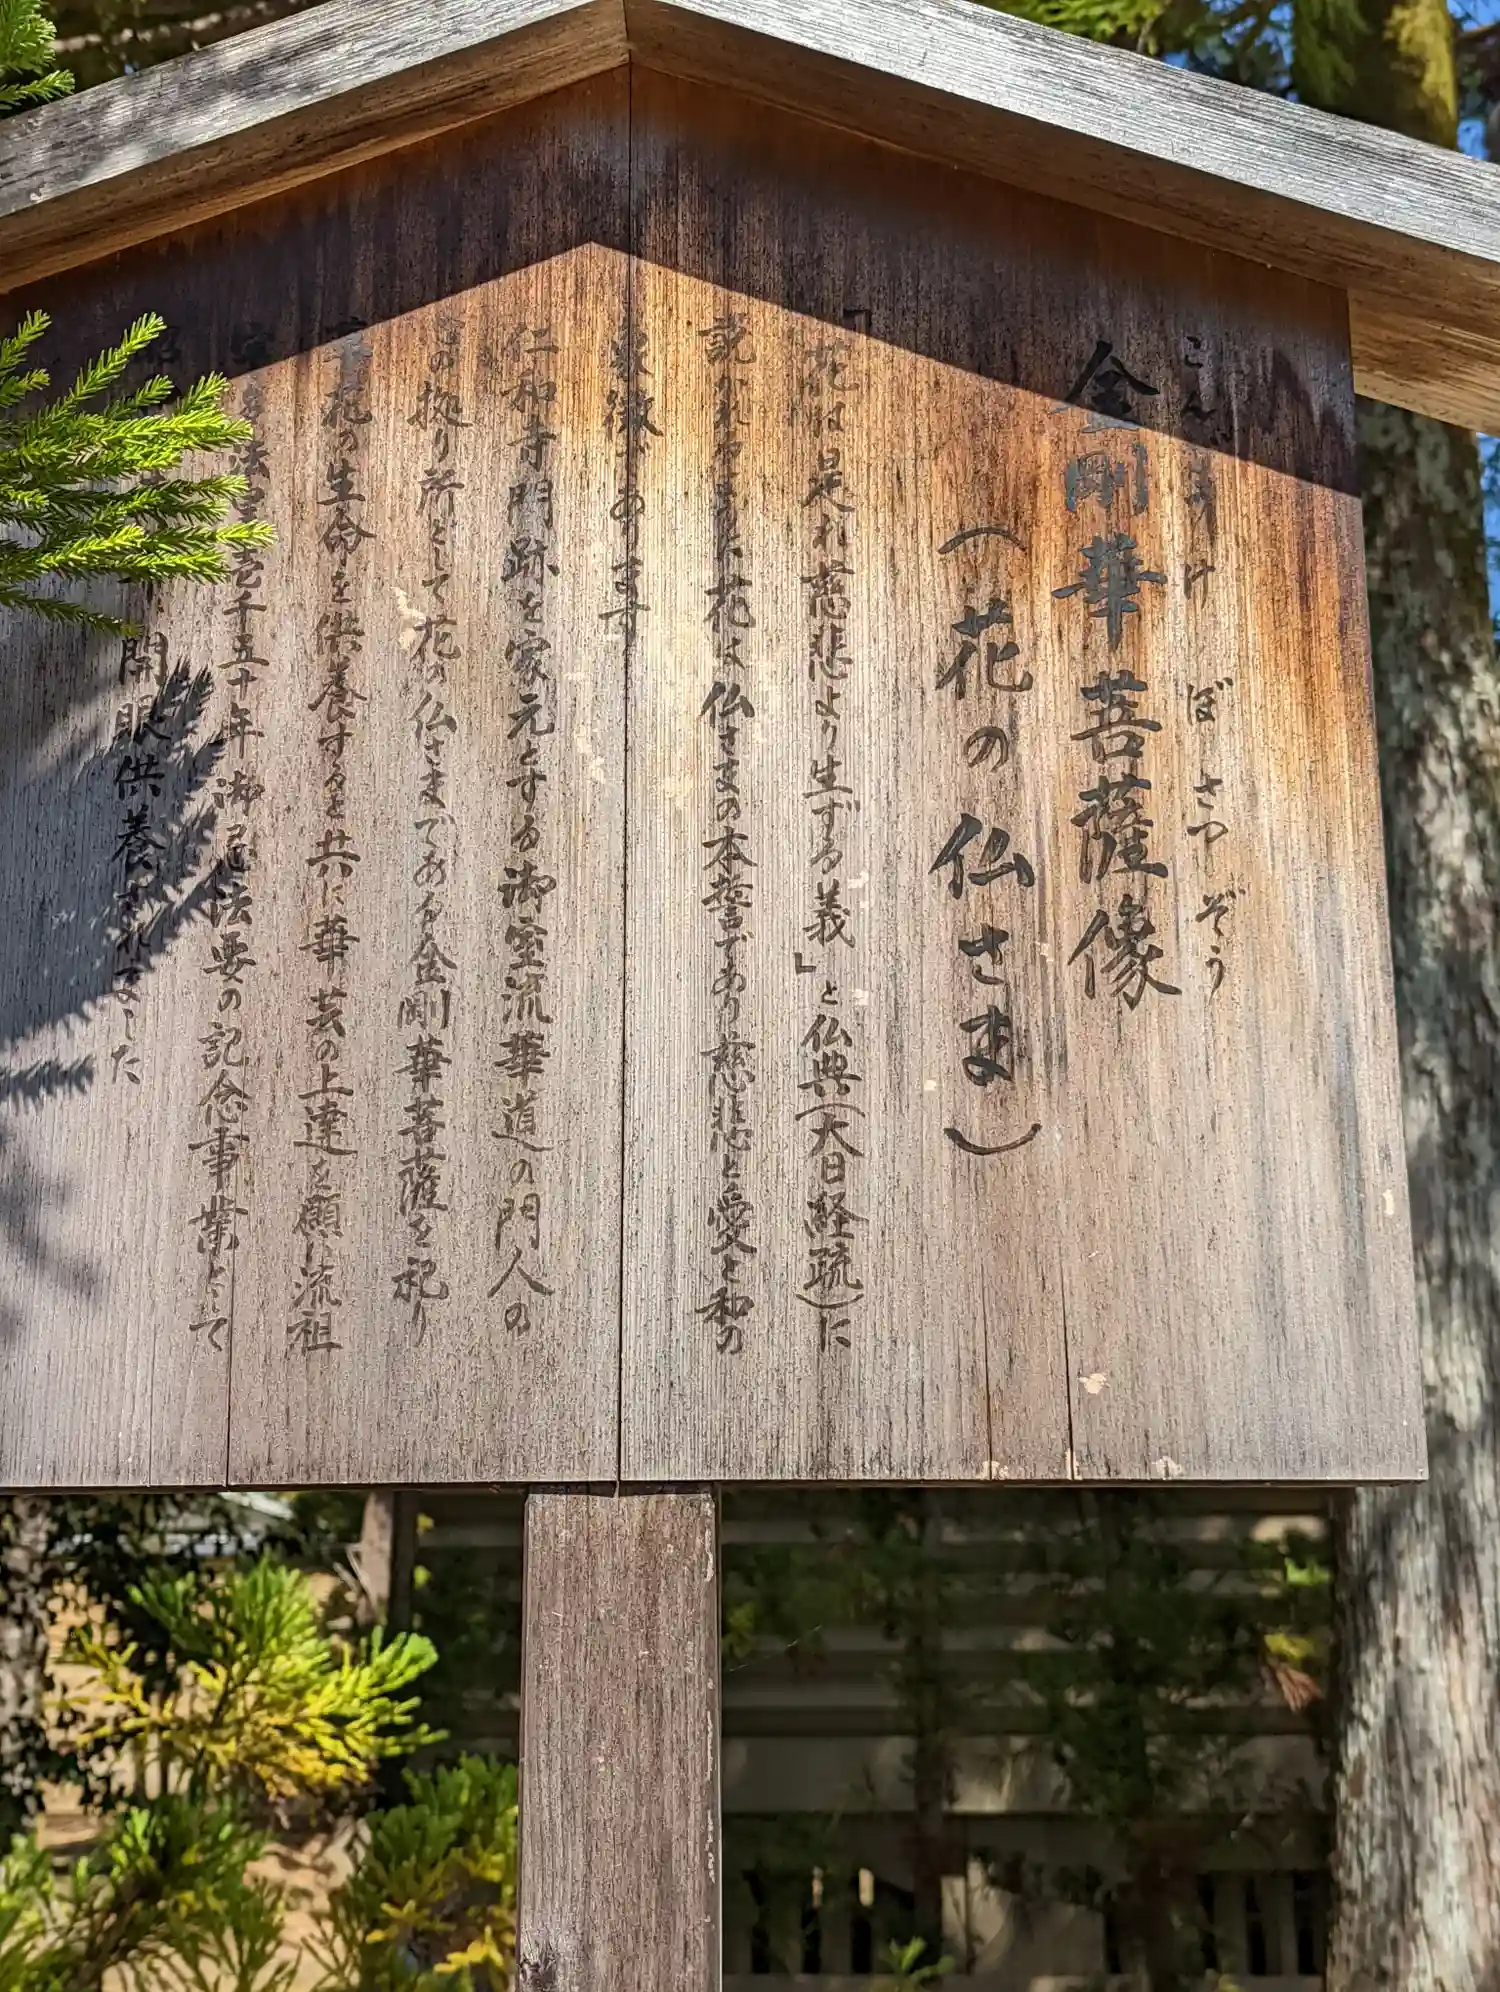 こんごうけ ぼさつぞう
金剛華菩薩像
（花の仏さま）
「花は是れ慈悲より生ずる義」と仏典（大日経疏）に
説かれるように花は仏さまの本誓であり慈悲と愛と和の
象徴であります
仁和寺門跡を家元とする御室流華道の門人の
心の拠り所として花の仏さまである金剛華菩薩を祀り
草花の生命を供養すると共に華芸の上達を願い流祖
法皇壱千五十年御忌法要の記念事業として
昭 開眼供養されました